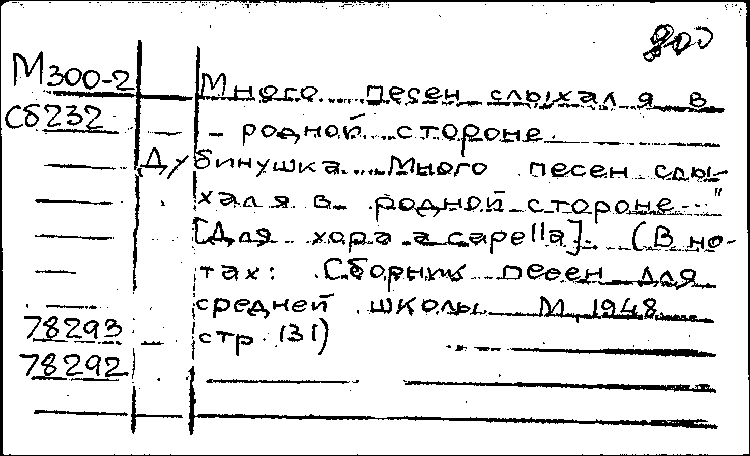 900
М300-2 Много песен слыхал я в
С6232 - родной стороне.
Дубинушка. „Много песен слы-
хал я в родной стороне..."
[Для хора a capella]. (В но-
тах: Сборник песен для
средней школы М, 1948
78293 стр 131)
78292